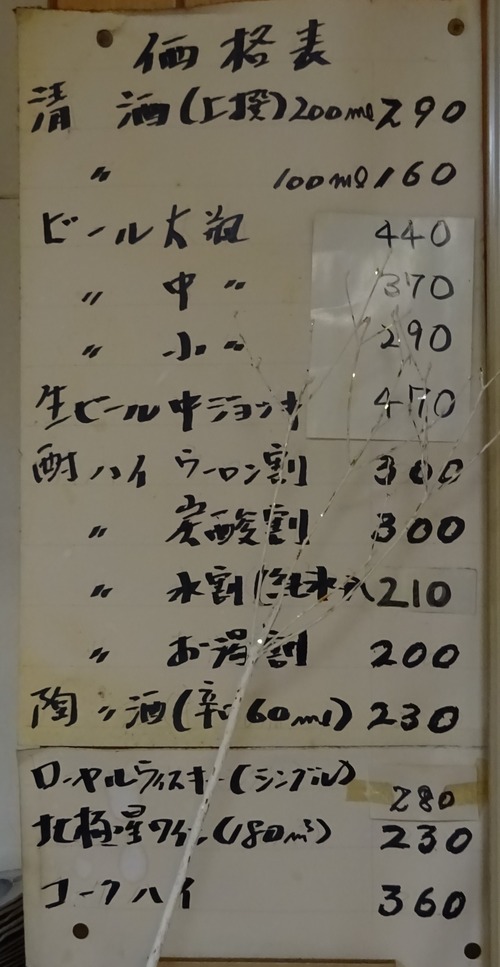 価格表
清 酒(上撰)200ml 290
〃 100ml 160
ビール大瓶 440
〃 中 〃 370
〃 小 〃 290
生ビール 中ジョッキ 470
酎ハイ ウーロン割 300
〃 炭酸割 300
〃 水割 210
〃 お湯割 200
陶〃酒(60ml) 230
ローヤルウイスキー(シングル) 280
北極星ワイン(180ml) 230
コークハイ 360